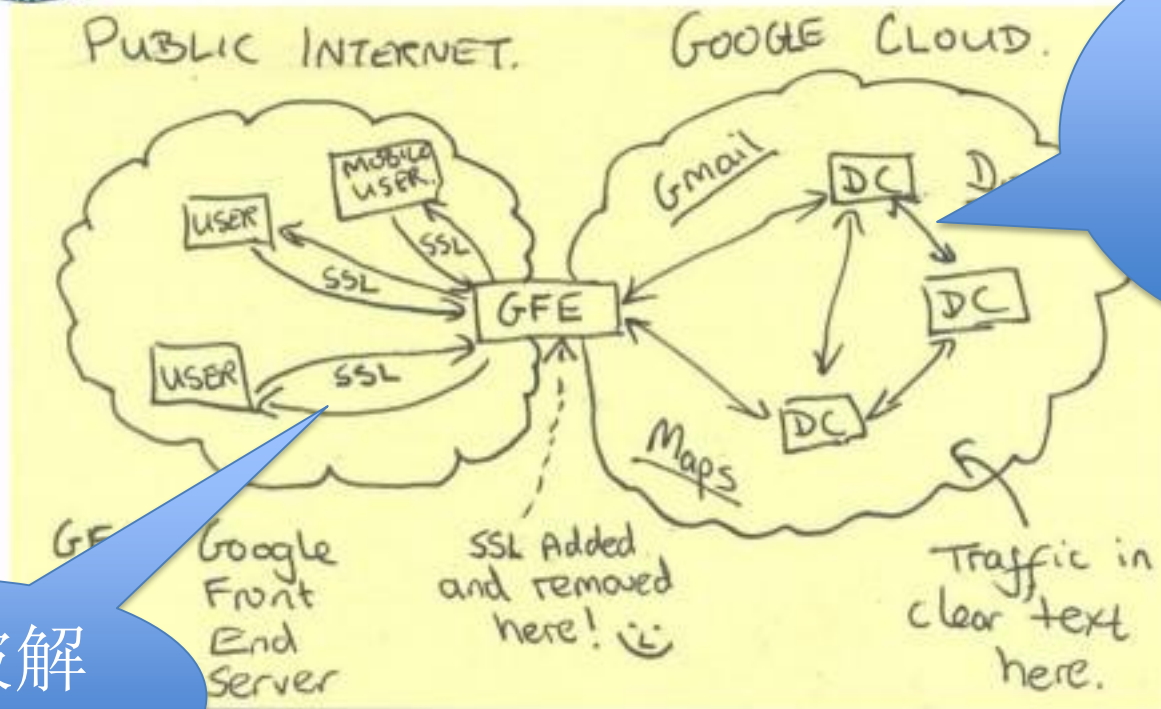 PUBLIC INTERNET.
GOOGLE CLOUD.
MOBILE
USER.
USER
SSL
SSL
USER
SSL
GFE
Gmail
DC
DC
DC
Maps
Google
Front
End
Server
SSL Added
and removed
here!
Traffic in
clear text
here.
解